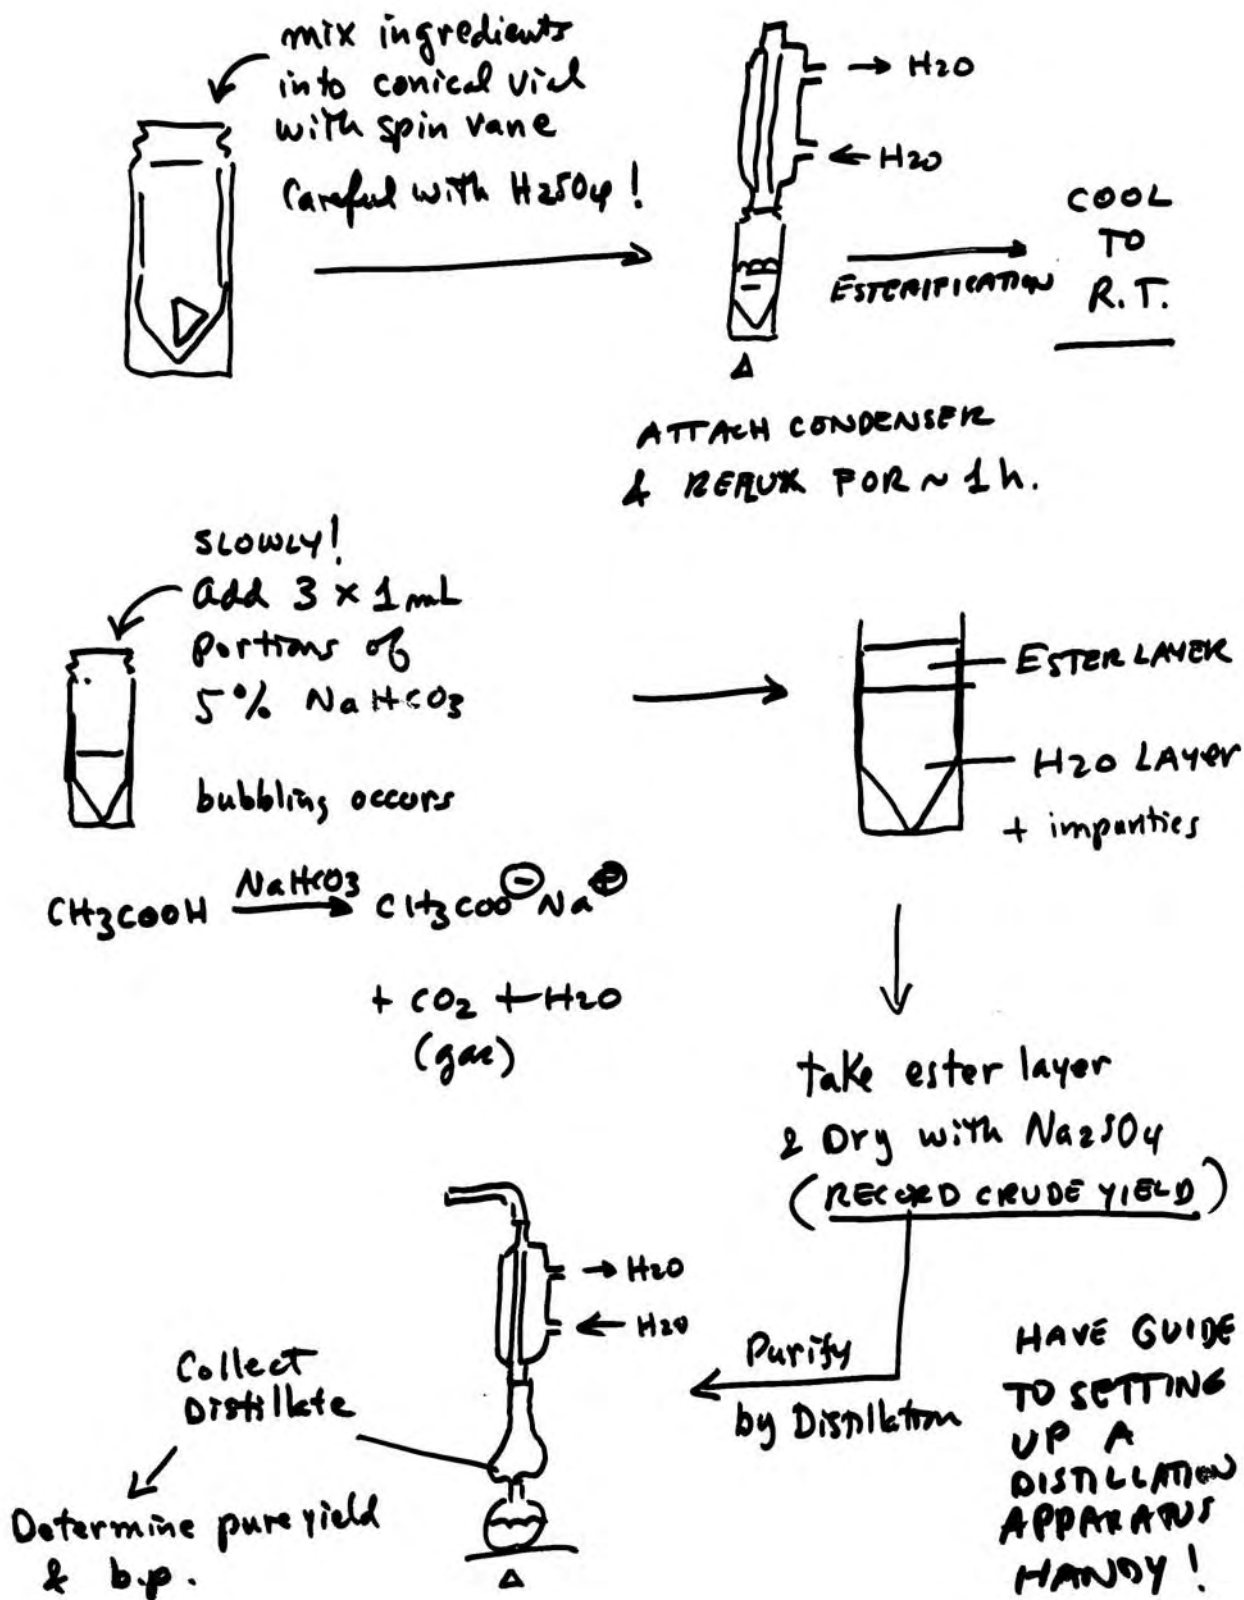 mix ingredients
into conical vial
with spin vane
Careful with H2SO4!
→ H2O
← H2O
ESTERIFICATION
COOL
TO
R.T.
Δ
ATTACH CONDENSER
& REFLUX FOR ~ 1 h.
SLOWLY!
add 3 × 1 mL
portions of
5% NaHCO3
bubbling occurs
ESTER LAYER
H2O LAYER
+ impurities
CH3COOH NaHCO3 → CH3COO⊖Na⊕
+ CO2 + H2O
(gas)
take ester layer
& Dry with Na2SO4
(RECORD CRUDE YIELD)
→ H2O
← H2O
Purify
by Distillation
HAVE GUIDE
TO SETTING
UP A
DISTILLATION
APPARATUS
HANDY!
Collect
Distillate
Determine pure yield
& b.p.
Δ